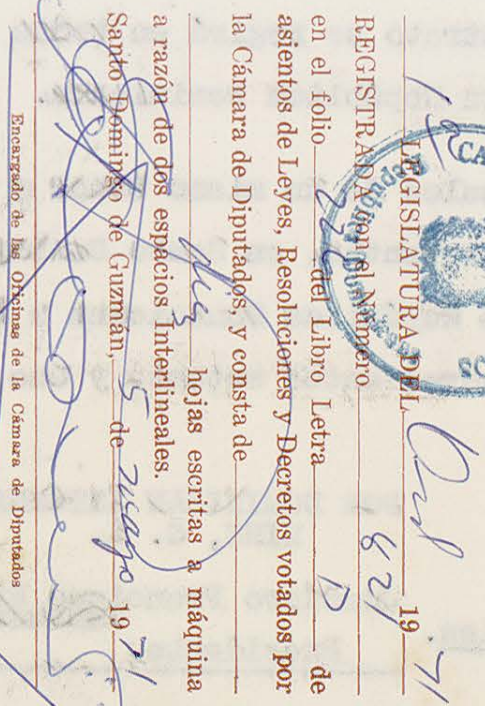 1a LEGISLATURA DEL Ord 1971
REGISTRADA en el Número 821
en el folio del Libro Letra D de
asientos de Leyes, Resoluciones y Decretos votados por
la Cámara de Diputados, y consta de
diez hojas escritas a máquina
a razón de dos espacios Interlineales.
Santo Domingo de Guzmán, 5 de mayo 1971
Encargado de las Oficinas de la Cámara de Diputados